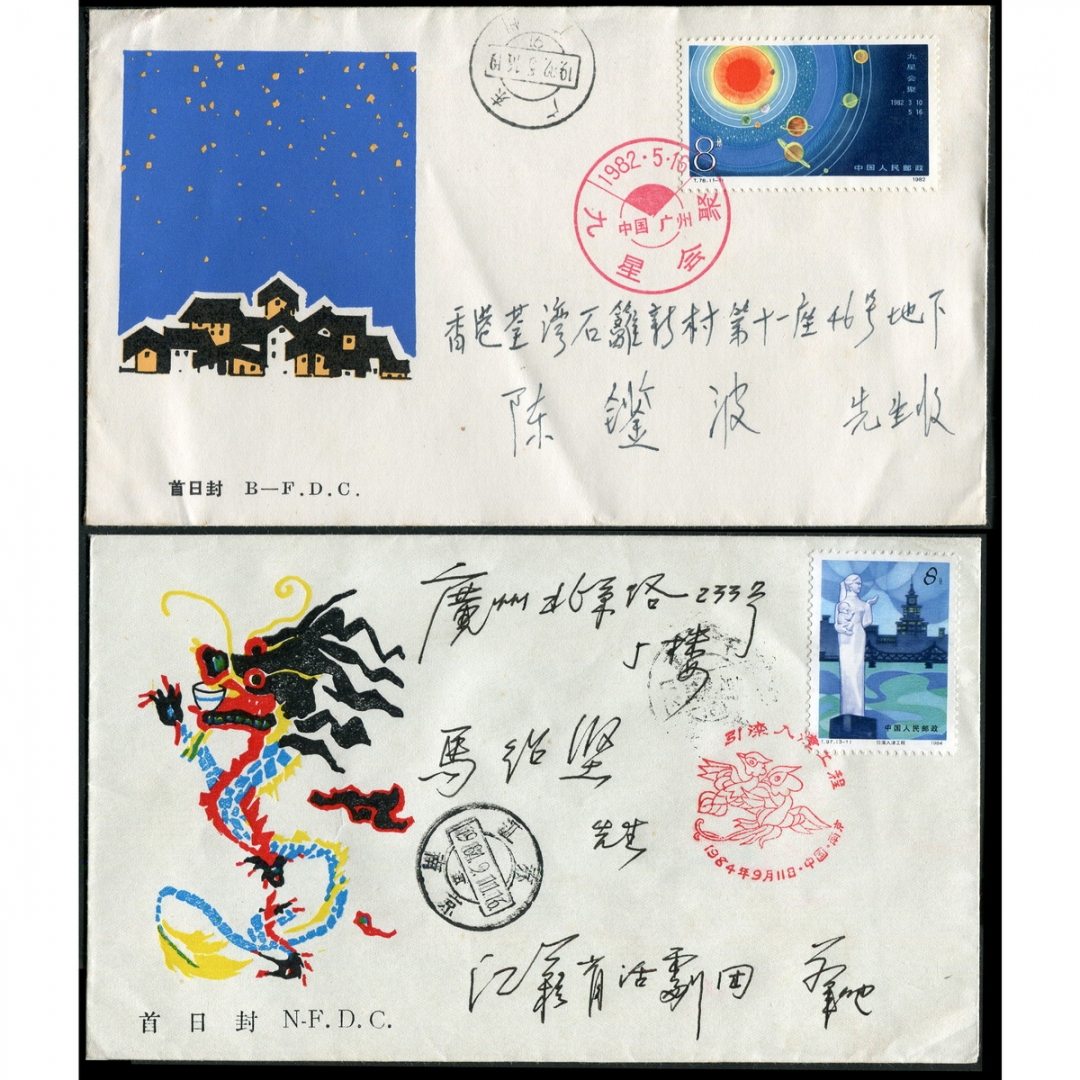 九星会聚
1982 3 10
5 16
8分
中国人民邮政
T.78.(1-1)
1982
1982.5.16
中国 广州
九星会聚
广东
1982.5.16.19
香港荃湾石籬新村第十一座46号地下
陈鑑波 先生收
首日封 B—F.D.C.
廣州北京路233号
5楼
8分
中国人民邮政
T.97.(3-1)
引滦入津工程
1984
馬绍坚
先生
引滦入津工程
1984年9月11日·中国·南京
江苏
南京
江苏省话劇团
首日封 N-F.D.C.